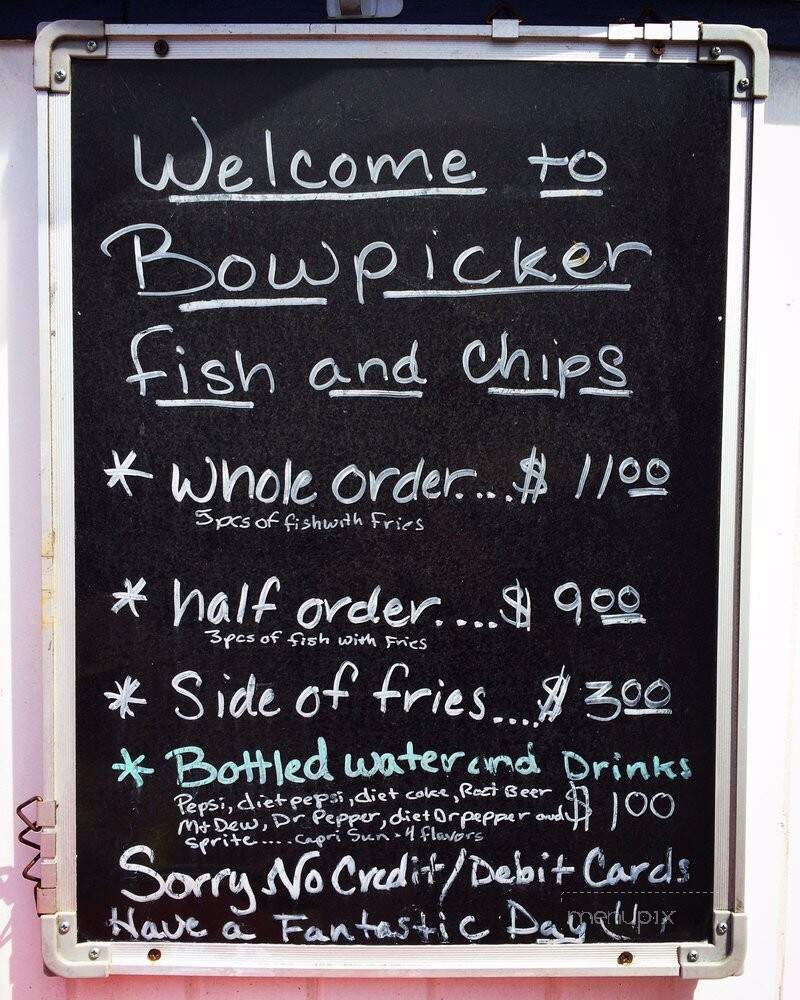 Welcome to
Bowpicker
fish and chips
* whole order....$ 11 00
5pcs of fish with Fries
* half order....$ 9 00
3pcs of fish with Fries
* Side of fries....$ 3 00
* Bottled water and Drinks
Pepsi, diet pepsi, diet coke, Root Beer
Mt Dew, Dr Pepper, diet Dr pepper and $ 1 00
sprite....capri Sun - 4 flavors
Sorry No Credit/Debit Cards
Have a Fantastic Day
menupix